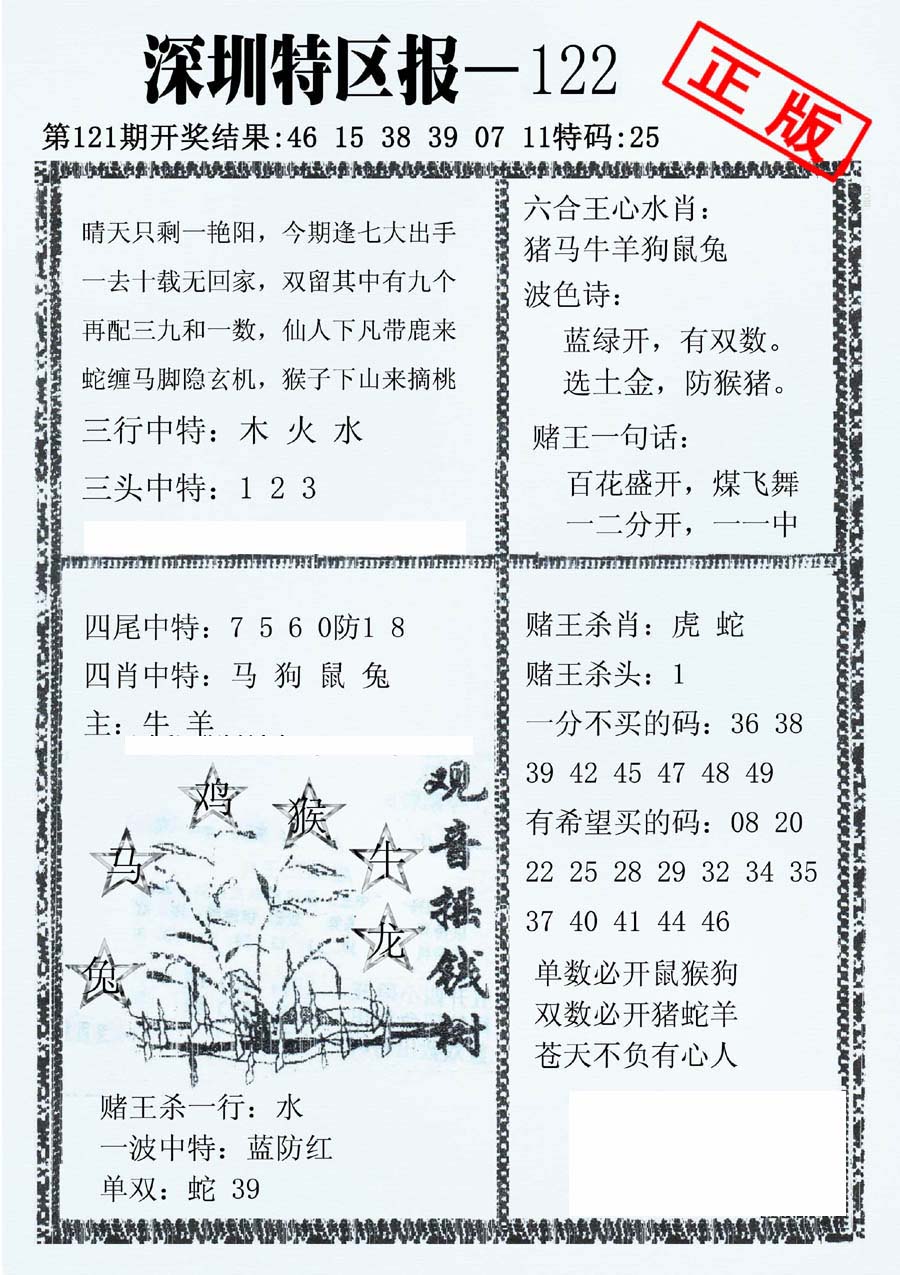 深圳特区报—122
正版
第121期开奖结果:46 15 38 39 07 11特码:25
晴天只剩一艳阳，今期逢七大出手
一去十载无回家，双留其中有九个
再配三九和一数，仙人下凡带鹿来
蛇缠马脚隐玄机，猴子下山来摘桃
三行中特：木 火 水
三头中特：1 2 3
六合王心水肖：
猪马牛羊狗鼠兔
波色诗：
蓝绿开，有双数。
选土金，防猴猪。
赌王一句话：
百花盛开，煤飞舞
一二分开，一一中
四尾中特：7 5 6 0防1 8
四肖中特：马 狗 鼠 兔
主：牛 羊
鸡
猴
马
牛
兔
龙
观音摇钱树
赌王杀一行：水
一波中特：蓝防红
单双：蛇 39
赌王杀肖：虎 蛇
赌王杀头：1
一分不买的码：36 38
39 42 45 47 48 49
有希望买的码：08 20
22 25 28 29 32 34 35
37 40 41 44 46
单数必开鼠猴狗
双数必开猪蛇羊
苍天不负有心人